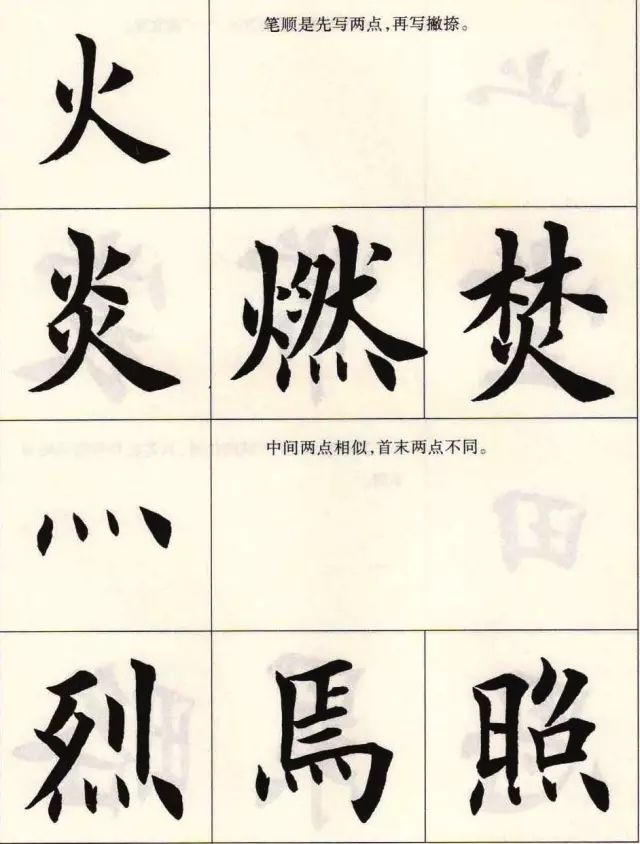 火
笔顺是先写两点,再写撇捺。
炎 燃 焚
灬
中间两点相似,首末两点不同。
烈 焉 照